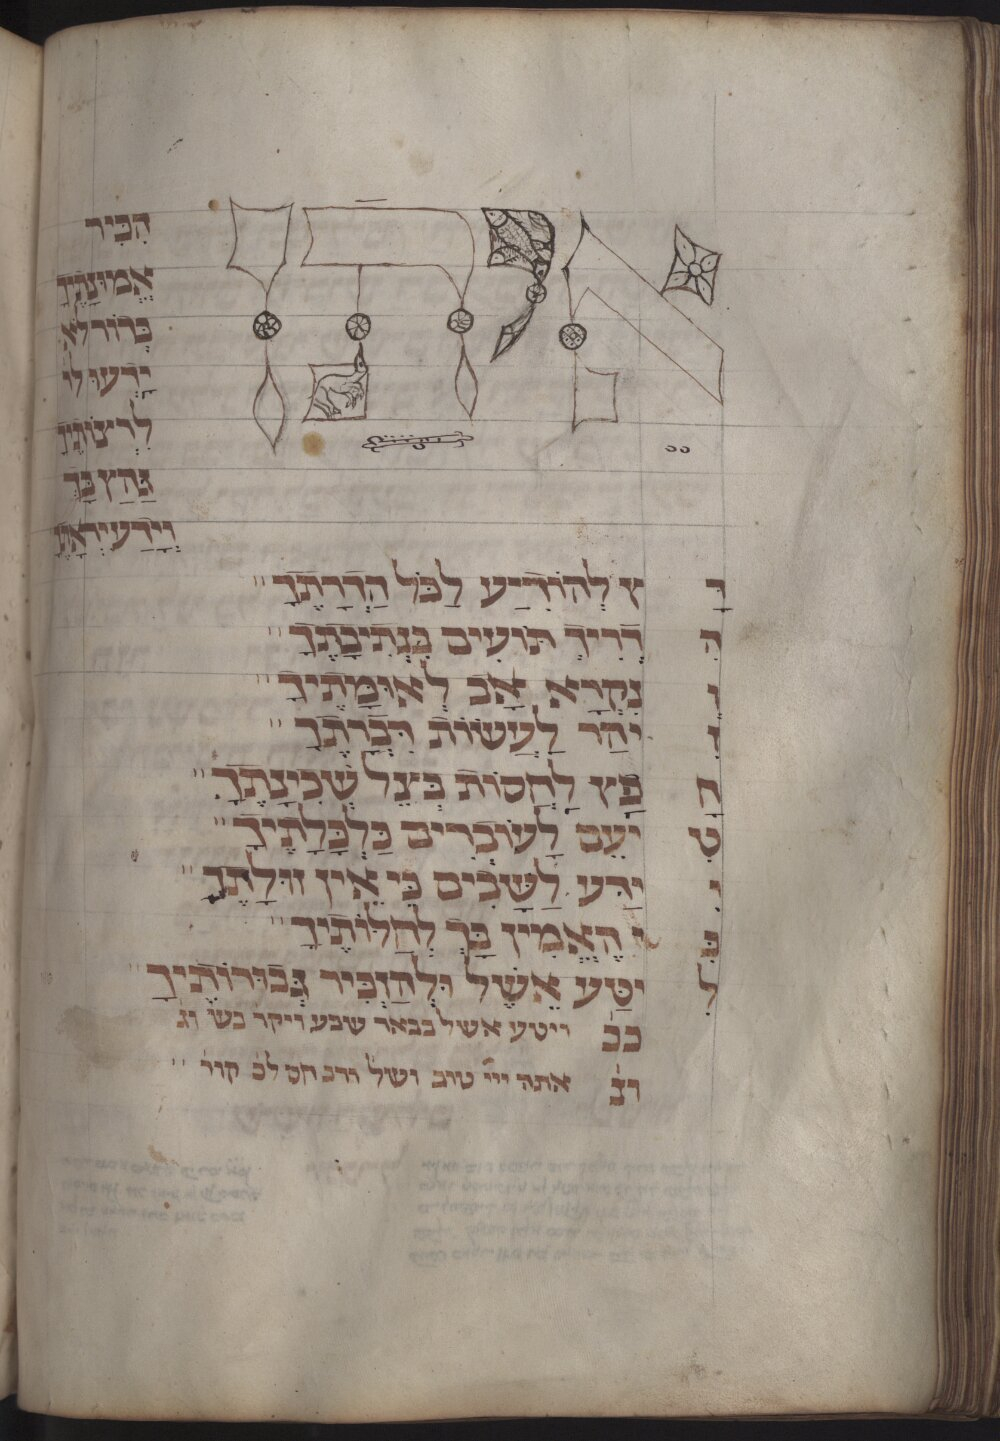 אֵיתָן
הִכִּיר
אֱמוּנָתֶךָ
בְּדוֹר לֹא
יָדְעוּ לִ
לְרַצּוֹתֶךָ
גָּהַץ בְּךָ
וְיָדַע יִרְאָתֶךָ
דָּץ לְהוֹדִיעַ לַכֹּל הַדְרָתֶךָ
הִדְרִיךְ תּוֹעִים בִּנְתִיבָתֶךָ
וְנִקְרָא אָב לְאוּמָּתֶיךָ
זִיהַר לַעֲשׂוֹת דִּבְרָתֶךָ
חָפֵץ לַחֲסוֹת בְּצֵל שְׁכִינָתֶךָ
טִיעֵם לָעוֹבְרִים כַּלְכָּלָתֶיךָ
יִידַע לַשָּׁבִים כִּי אֵין זוּלָתֶךָ
כִּי הֶאֱמִין בָּךְ לְחַלּוֹתֶיךָ
לִיטַּע אֵשֶׁל וּלְהַזְכִּיר גְּבוּרוֹתֶיךָ
ככ׳ ויטע אשל בבאר שבע ויקר׳ בש׳ וג׳
ונ׳ אתה ייי טוב וסל׳ ורב חס לכ׳ קור׳